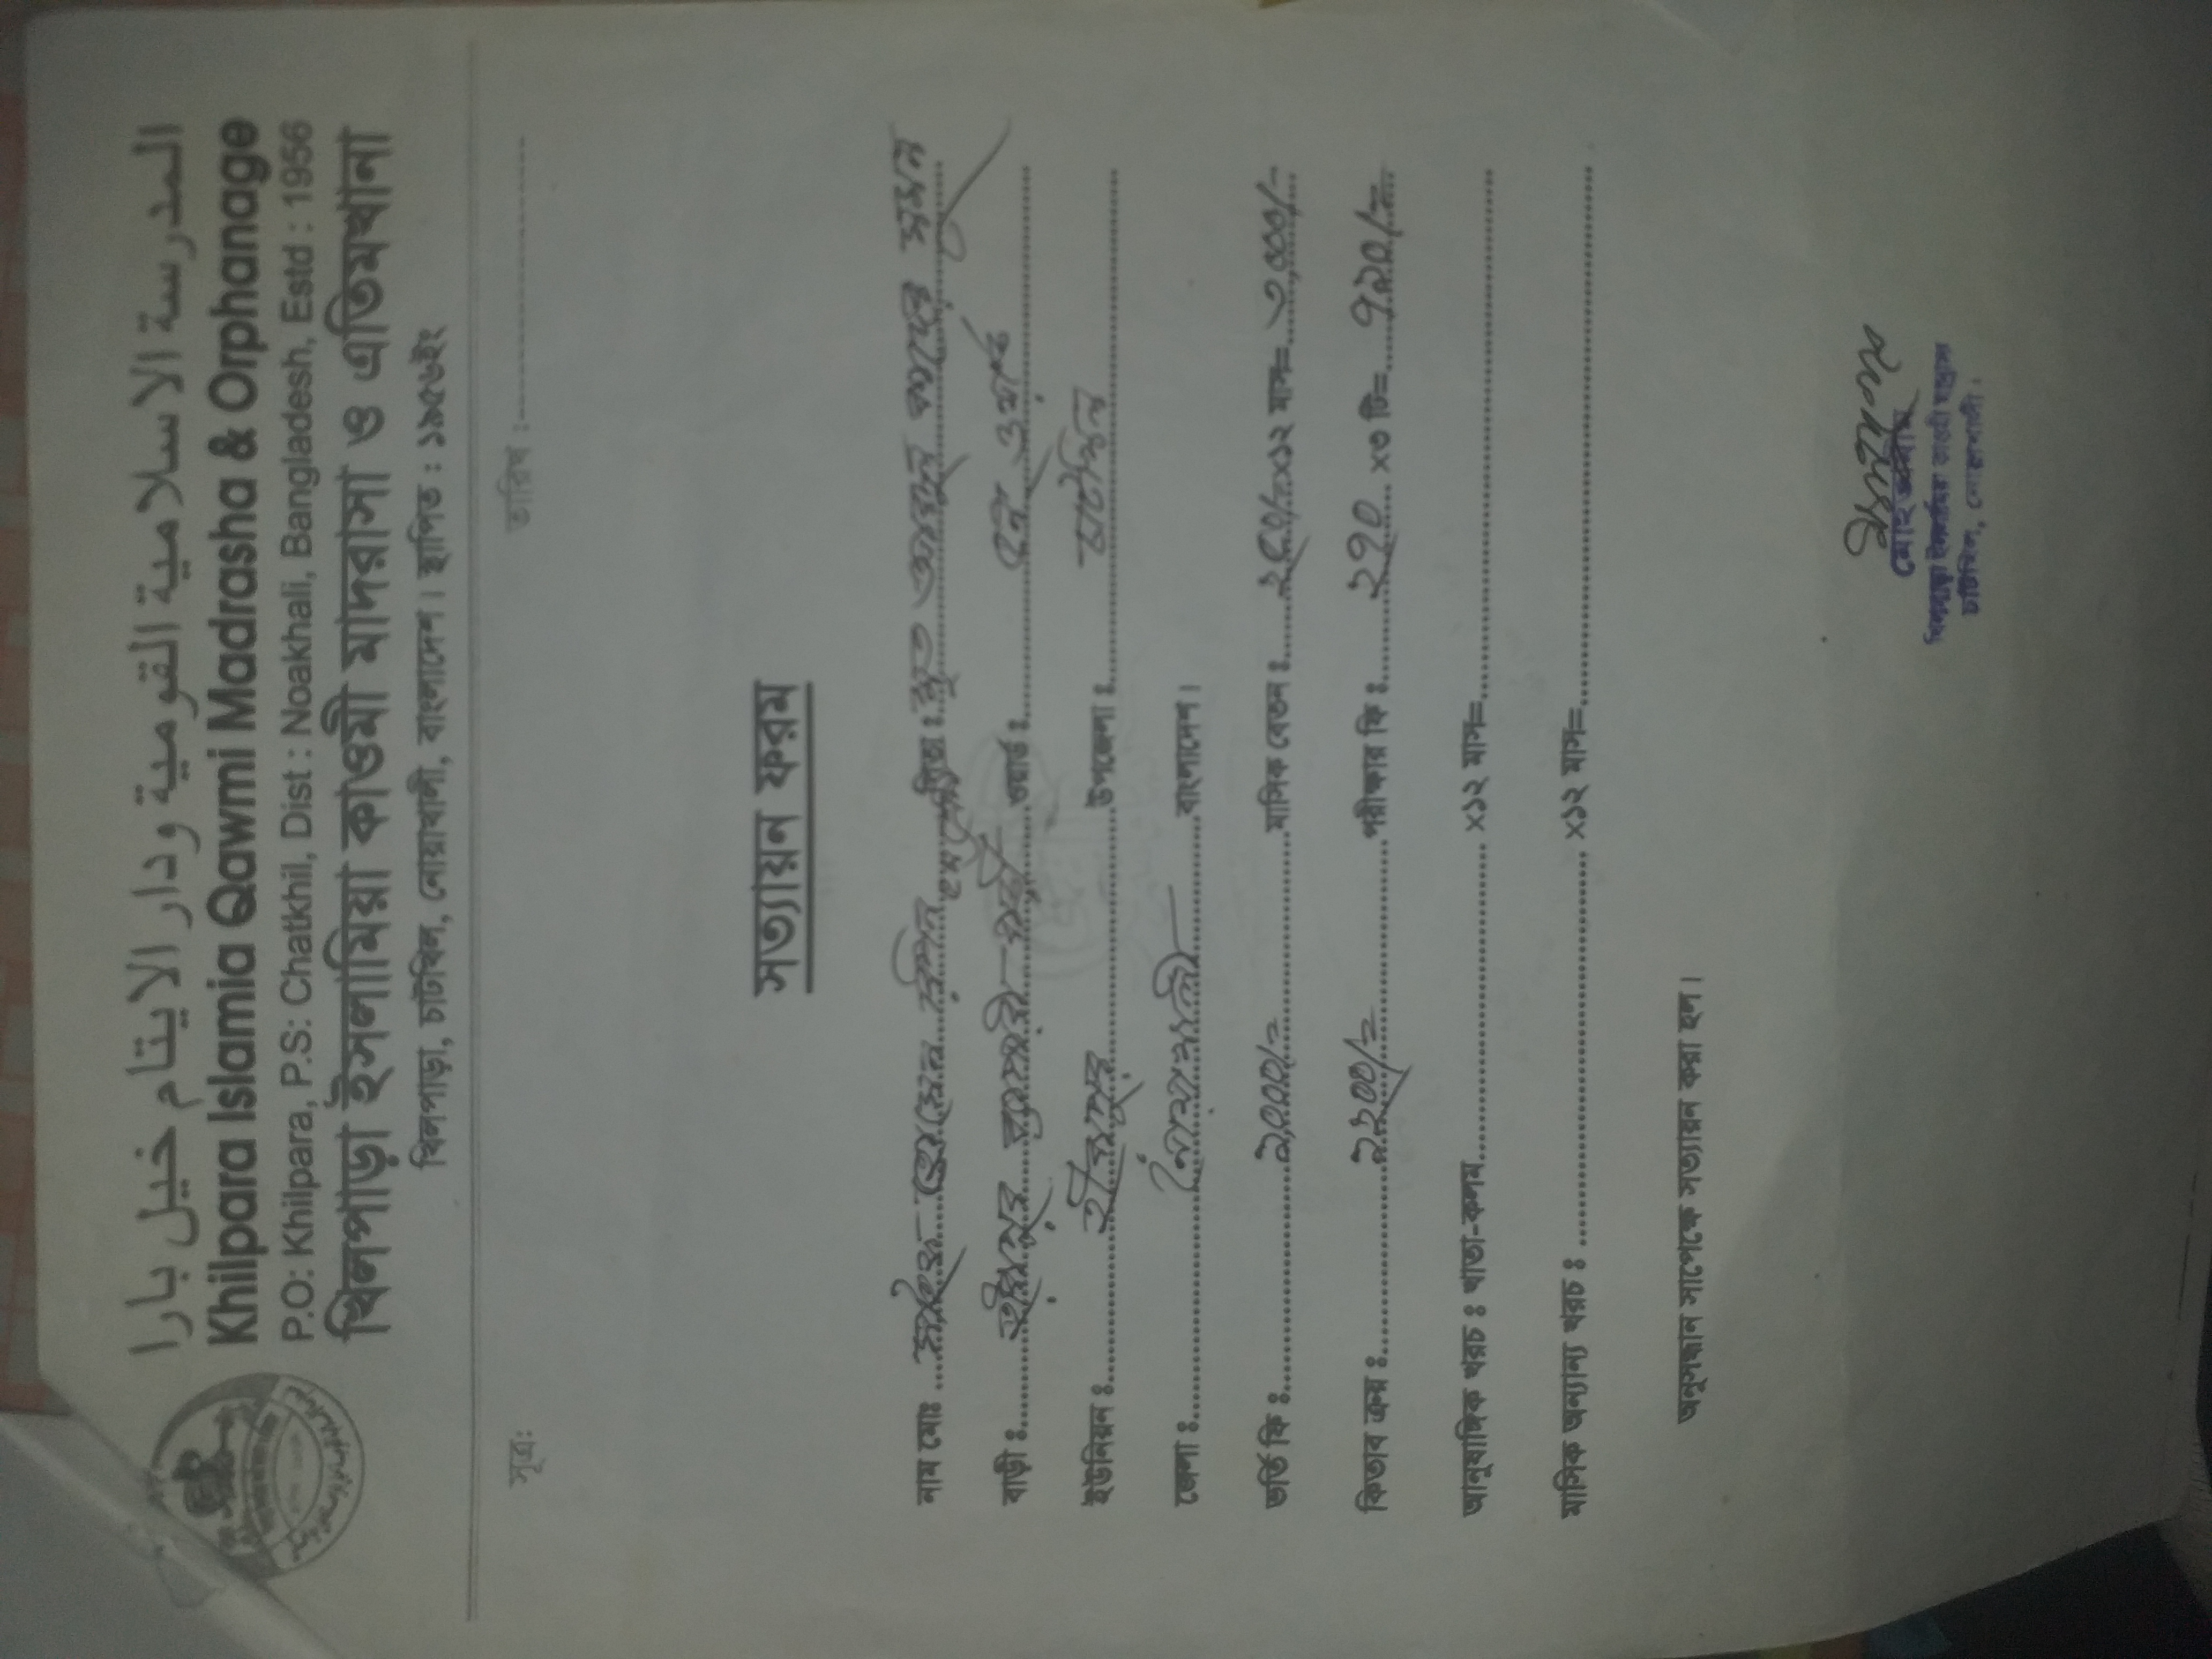 المدرسة الاسلامية القومية ودار الايتام خيل بارا
Khilpara Islamia Qawmi Madrasha & Orphanage
P.O: Khilpara, P.S: Chatkhil, Dist : Noakhali, Bangladesh, Estd : 1956
খিলপাড়া ইসলামিয়া কাওমী মাদরাসা ও এতিমখানা
খিলপাড়া, চাটখিল, নোয়াখালী, বাংলাদেশ। স্থাপিত : ১৯৫৬ইং
সূত্র: তারিখ :--------------------
সত্যায়ন ফরম
নাম মোঃ ..... হোসেন ..... পিতা : মৃত আবদুল কাদের সুমন
বাড়ী ঃ..... ব্যাপারী বাড়ী ..... ওয়ার্ড ঃ..... ৫নং ওয়ার্ড
ইউনিয়ন ঃ..... হীরাপুর ..... উপজেলা ঃ..... চাটখিল
জেলা ঃ..... নোয়াখালী ..... বাংলাদেশ।
ভর্তি ফি ঃ..... ২,০০০/= ..... মাসিক বেতন ঃ..... ২৫০/= x১২ মাস= ৩,০০০/-
কিতাব ক্রয় ঃ..... ..... পরীক্ষার ফি ঃ..... x৩ টি=.....
আনুষাঙ্গিক খরচ ঃ খাতা-কলম..... x১২ মাস=.....
মাসিক অন্যান্য খরচ ঃ ..... x১২ মাস=.....
অনুসন্ধান সাপেক্ষে সত্যায়ন করা হল।
মোহতামীম
খিলপাড়া ইসলামিয়া কাওমী মাদ্রাসা
চাটখিল, নোয়াখালী।